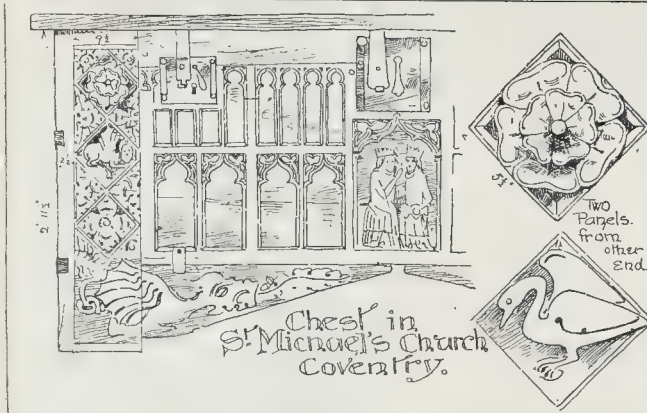 9½
2' 11½"
5½"
Two
Panels.
from
other
End
Chest in
St. Michael's Church
Coventry.